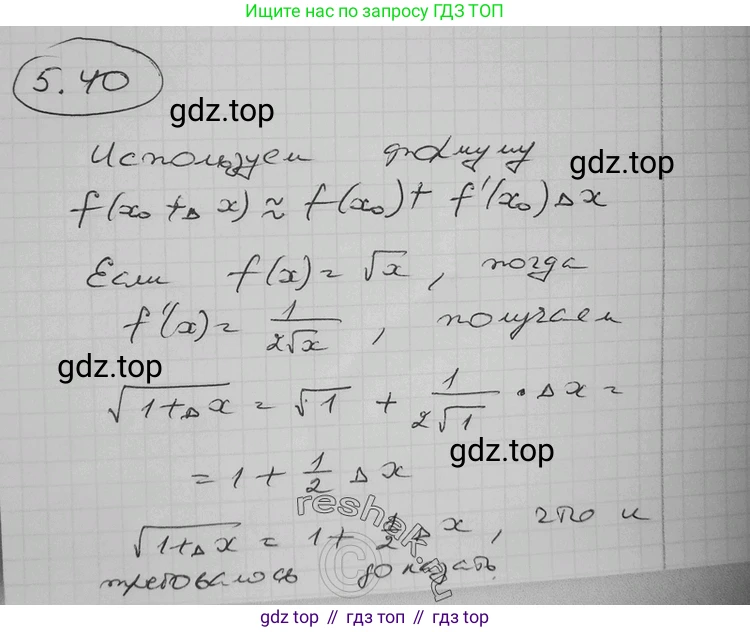 Ищите нас по запросу ГДЗ ТОП
5.40
gdz.top
Используем формулу
gdz.top
f(x₀ + Δ x) ≈ f(x₀) + f'(x₀) Δ x
Если f(x) = √x, тогда
f'(x) = 1/(2√x), получаем
gdz.top
√(1+Δ x) = √1 + 1/(2√1) · Δ x =
gdz.top
= 1 + 1/2 Δ x
reshak.ru
√(1+Δ x) = 1 + 1/2 Δ x, что и
требовалось доказать.
gdz top // гдз топ // gdz top